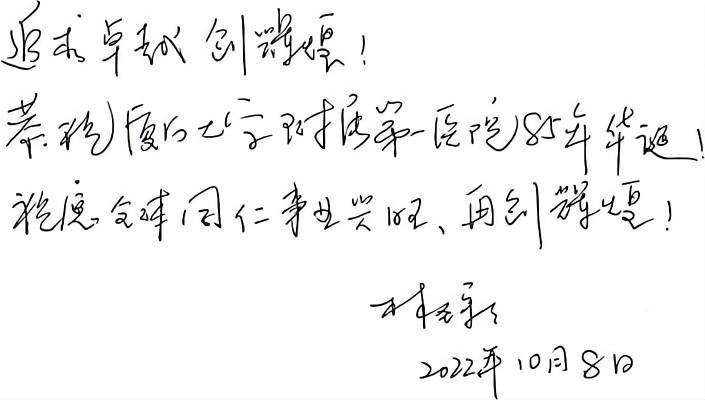 追求卓越 创辉煌！
恭祝厦门大学附属第一医院85年华诞！
祝愿全体同仁事业兴旺、再创辉煌！
林
2022年10月8日